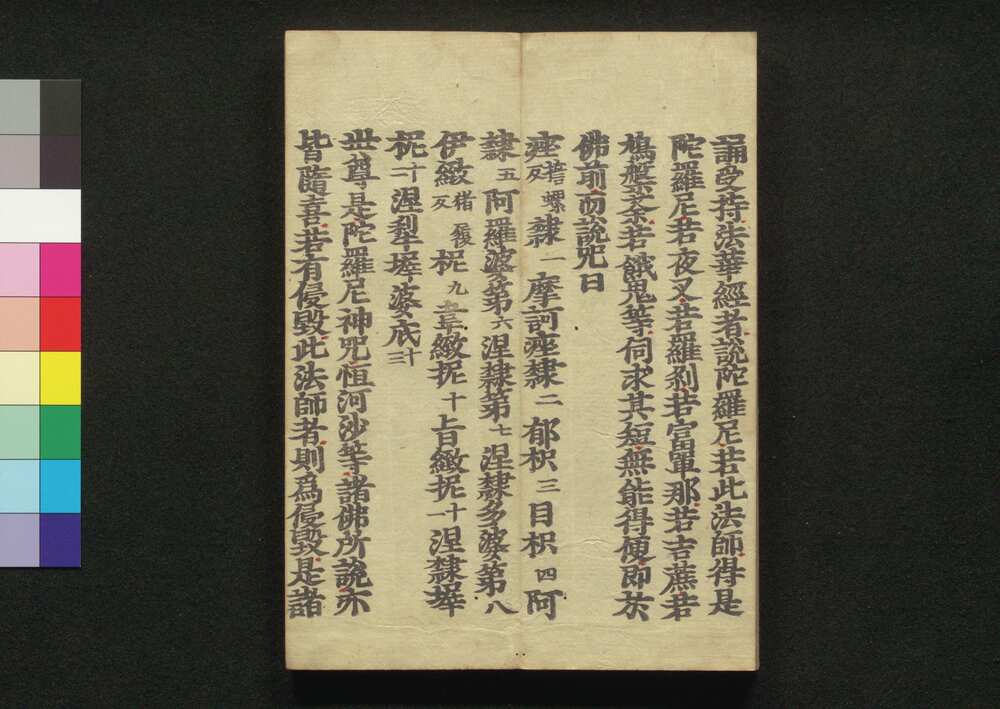 誦受持法華經者說陀羅尼若此法師得是
陀羅尼若夜叉若羅刹若富單那若吉蔗若
鳩槃荼若餓鬼等伺求其短無能得便即於
佛前而說咒曰
痤誓螺反隷一摩訶痤隷二郁枳三目枳四阿
隷五阿羅婆第六涅隷第七涅隷多婆第八
伊緻猪履反柅九韋緻柅十旨緻柅十一涅隷墀
柅十二涅犁墀婆底十三
世尊是陀羅尼神咒恒河沙等諸佛所說亦
皆隨喜若有侵毀此法師者則為侵毀是諸